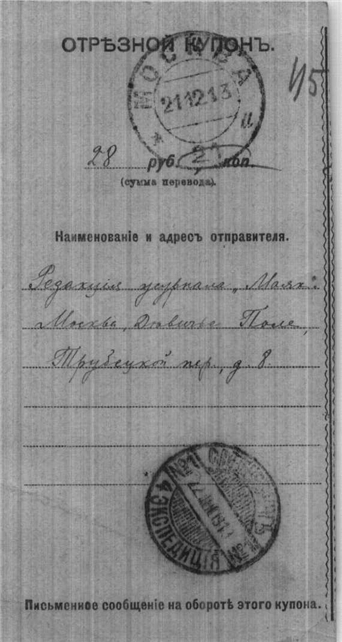 ОТРѢЗНОЙ КУПОНЪ.
МОСКВА
21 12 13
21
28 руб. коп.
(сумма перевода).
Наименованіе и адресъ отправителя.
Редакція журнала „Маякъ".
Москва, Дѣвичье Поле,
Трубецкой пер., д. 8.
4 ЭКСПЕДИЦІЯ №1
Письменное сообщеніе на оборотѣ этого купона.